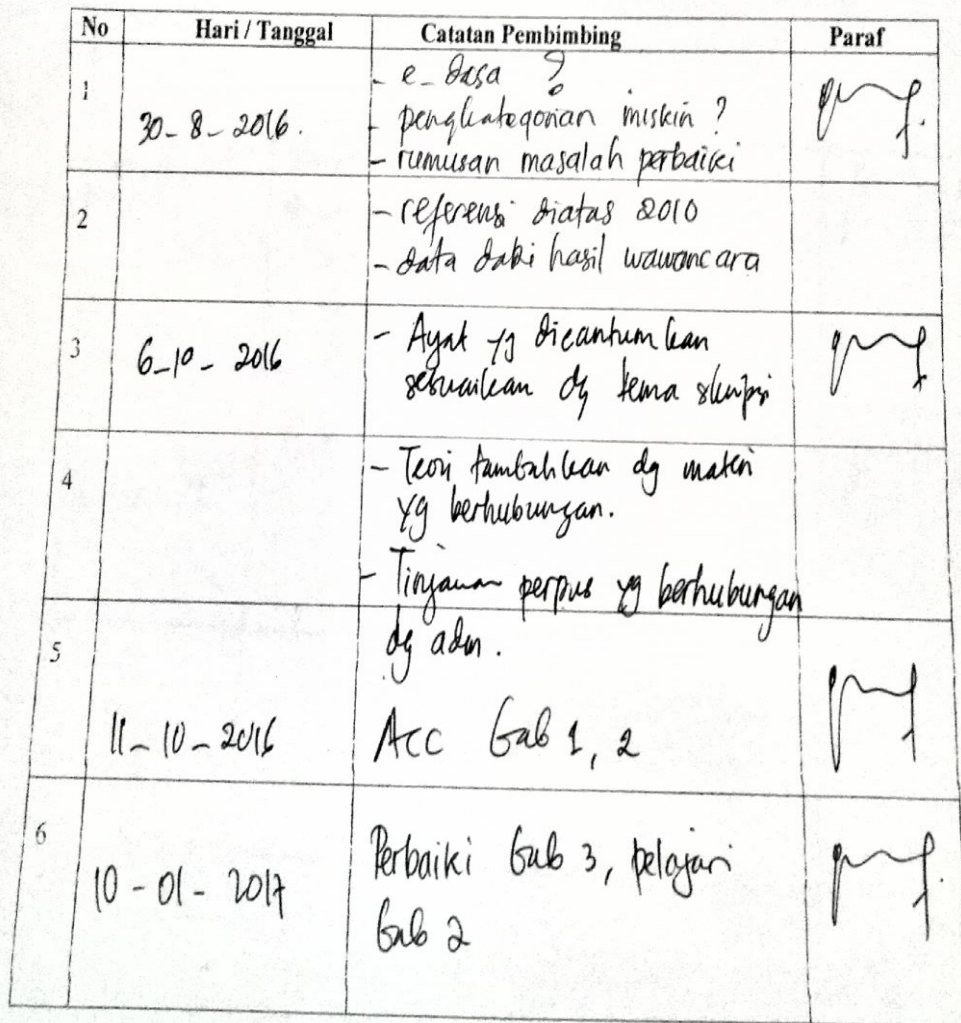 No Hari / Tanggal Catatan Pembimbing Paraf
1
- e-dasa ?
30-8-2016. - pengkategorian miskin ?
- rumusan masalah perbaiki
2 - referensi diatas 2010
- data dari hasil wawancara
3 6-10-2016 - Ayat yg dicantumkan
sesuaikan dg tema skripsi
4 - Teori tambahkan dg materi
yg berhubungan.
- Tinjauan perpus yg berhubungan
5 dg adm.
11-10-2016 Acc bab 1, 2
6 Perbaiki bab 3, pelajari
10-01-2017
bab 2